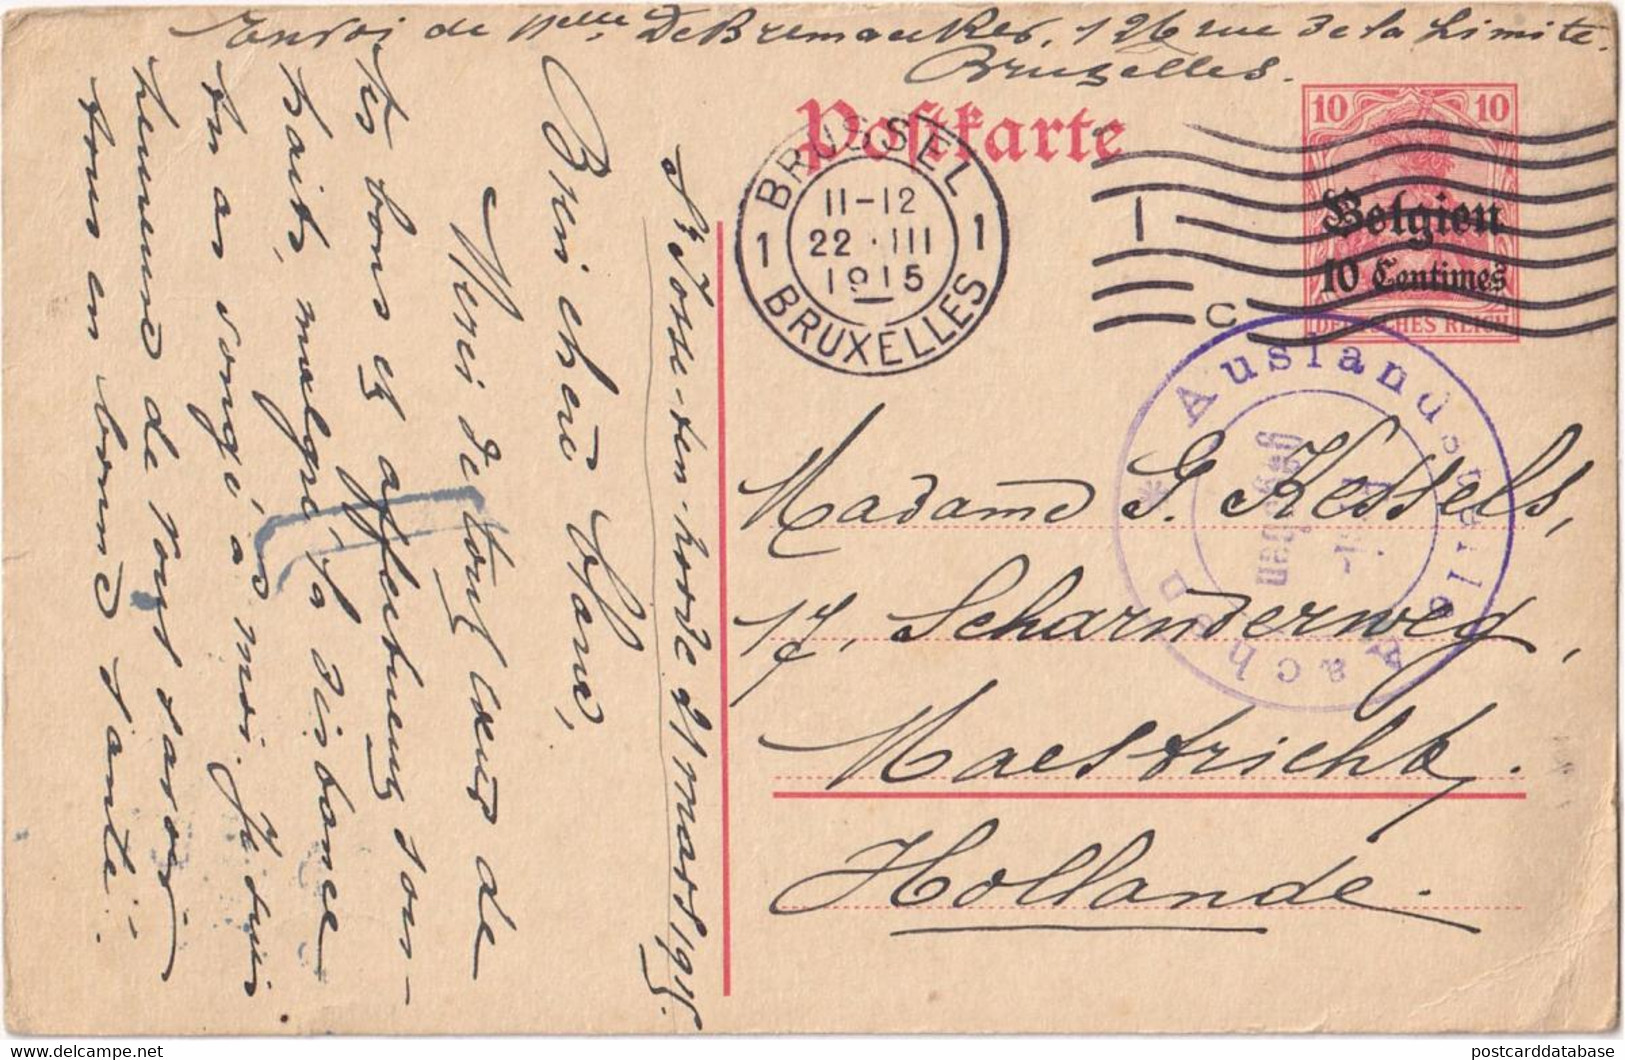 Envoi de Mlle De Bremaeker, 126 rue de la Limite.
Bruxelles.
Postkarte
10 10
Belgien
10 Centimes
DEUTSCHES REICH
BRUSSEL
11-12
22 · III
1915
1 1
BRUXELLES
1
C
Auslandsstelle
Aachen
Freigegeben
Madame G. Kessels,
17, Scharnderweg,
Maestricht.
Hollande.
St Josse-ten-noode 21 mars 1915.
Bien chère
Merci de tout cœur de
tes bons et affectueux sou-
haits, malgré la distance
tu as songé à moi. Je suis
heureuse de vous savoir
tous en bonne santé.
postcarddatabase